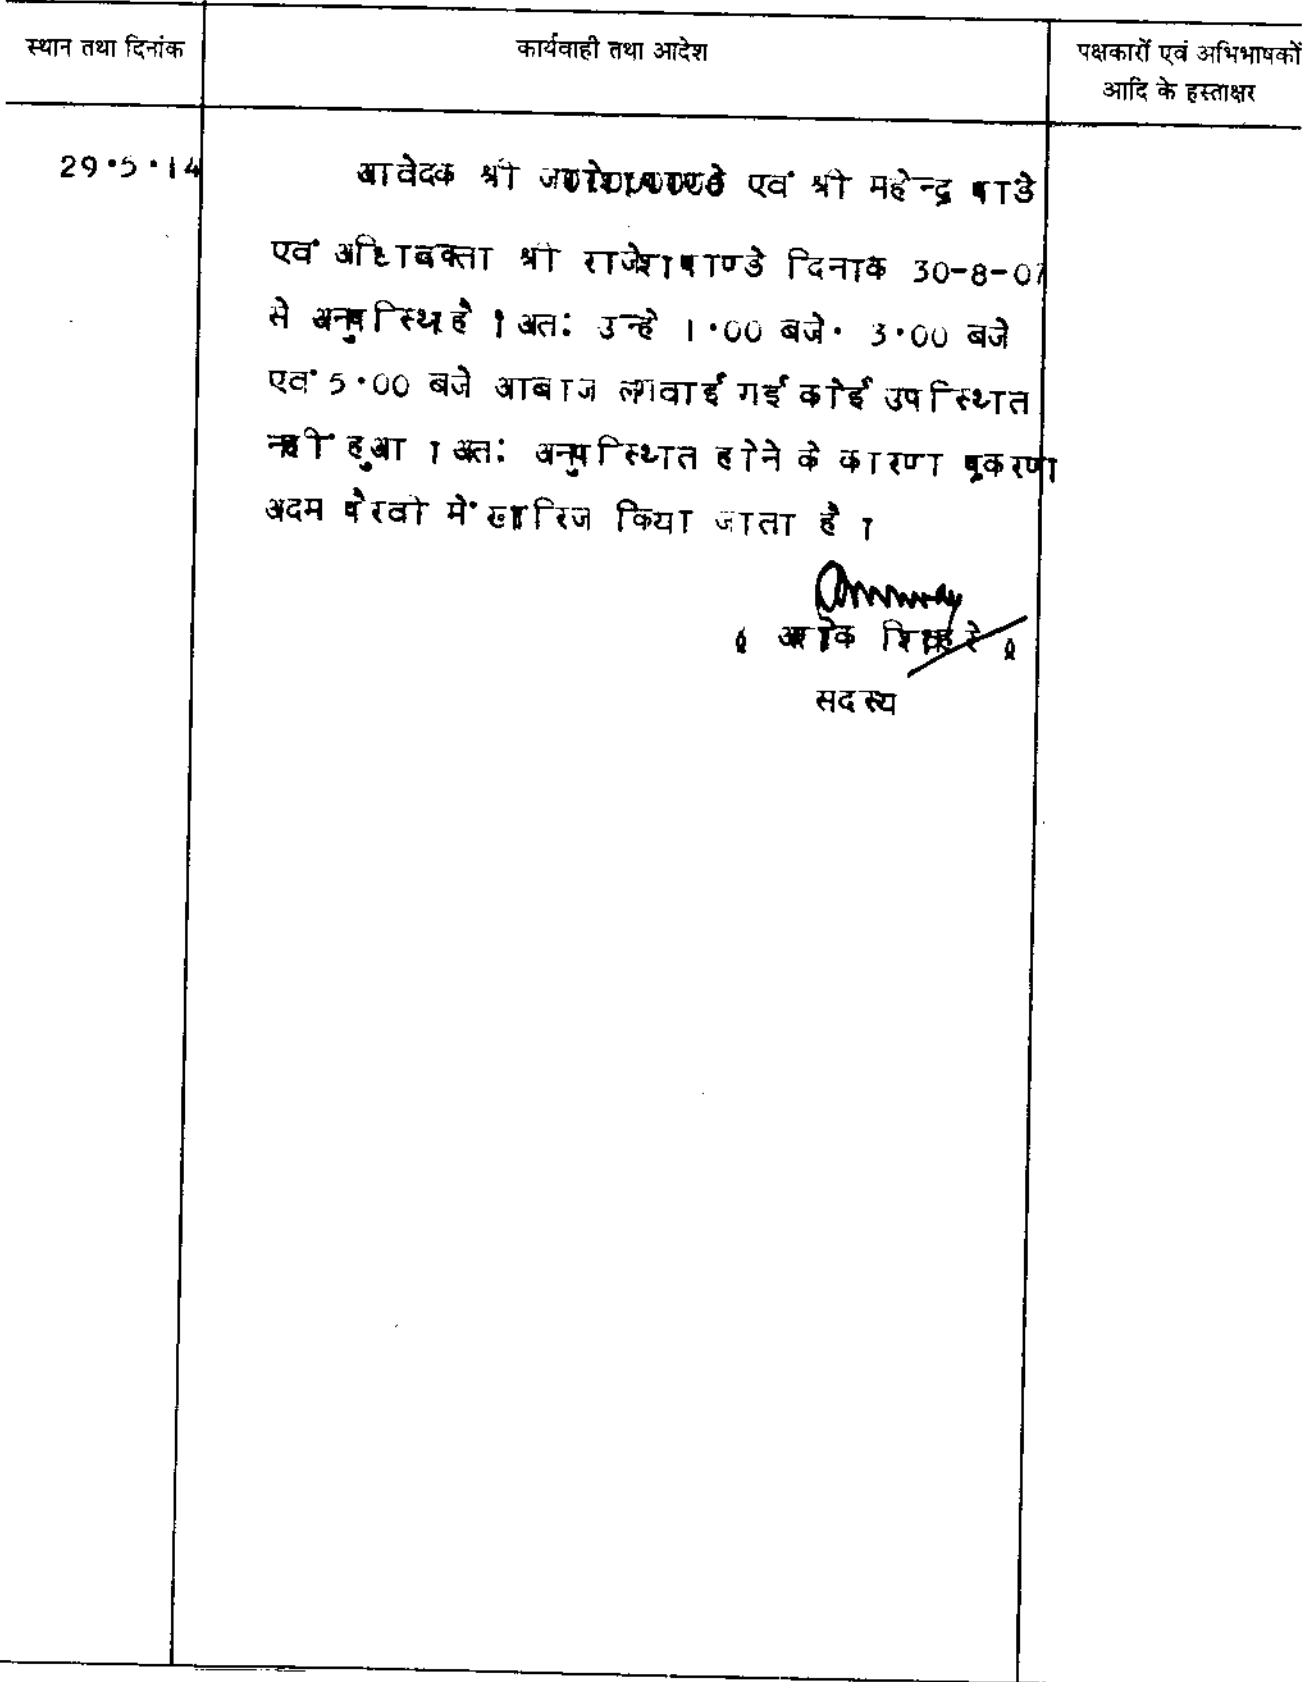 स्थान तथा दिनांक
कार्यवाही तथा आदेश
पक्षकारों एवं अभिभाषकों
आदि के हस्ताक्षर
29.5.14
आवेदक श्री एवं श्री महेन्द्र पाडे
एवं अभिाबक्ता श्री राजेश पाण्डे दिनाक 30-8-07
से अनुपस्थि है । अतः उन्हे 1.00 बजे. 3.00 बजे
एवं 5.00 बजे आबाज लगवाई गई कोई उपस्थित
नही हुआ । अतः अनुपस्थित होने के कारण प्रकरण
अदम पैरवी में खारिज किया जाता है ।
सदस्य